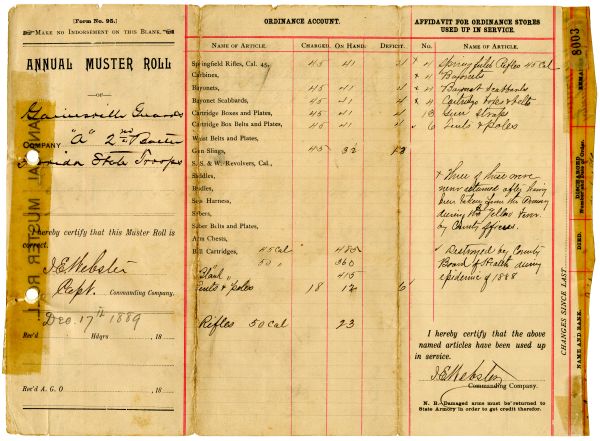 [Form No. 95.]
MAKE NO INDORSEMENT ON THIS BLANK.
ANNUAL MUSTER ROLL
—OF—
Gainesville Guards
COMPANY "A" 2nd
Florida State Troops
I hereby certify that this Muster Roll is
correct.
J.E. Webster
Capt. Commanding Company.
Dec. 17th 1889
Rec'd Hdqrs 18
Rec'd A. G. O 18
ANNUAL MUSTER ROLL
ORDINANCE ACCOUNT.
NAME OF ARTICLE. CHARGED. ON HAND. DEFICIT.
Springfield Rifles, Cal. 45, 45 41 4
Carbines,
Bayonets, 45 41 4
Bayonet Scabbards, 45 41 4
Cartridge Boxes and Plates, 45 41 4
Cartridge Box Belts and Plates, 45 41 4
Waist Belts and Plates,
Gun Slings, 45 32 13
S. S. & W. Revolvers, Cal.,
Saddles,
Bridles,
Sets Harness,
Sabers,
Saber Belts and Plates,
Arm Chests,
Ball Cartridges, 45 Cal 485
50 " 360
Blank " 415
Tents & poles 18 12 6
Rifles 50 Cal 23
AFFIDAVIT FOR ORDINANCE STORES
USED UP IN SERVICE.
No. NAME OF ARTICLE.
x 4 Springfield Rifles 45 Cal
x 4 Bayonets
x 4 Bayonet Scabbards
x 4 Cartridge boxes & belts
13 Gun Straps
✓ 6 Tents & poles
x Three of these were
never returned after having
been taken from the Armory
during the Yellow Fever
by County Officers.
✓ Destroyed by County
Board of Health during
epidemic of 1888
I hereby certify that the above
named articles have been used up
in service.
J.E. Webster
Commanding Company.
N. B.—Damaged arms must be returned to
State Armory in order to get credit therefor.
8003
DISCHARGED
Number and Date of Order.
DIED.
CHANGES SINCE LAST
NAME AND RANK.